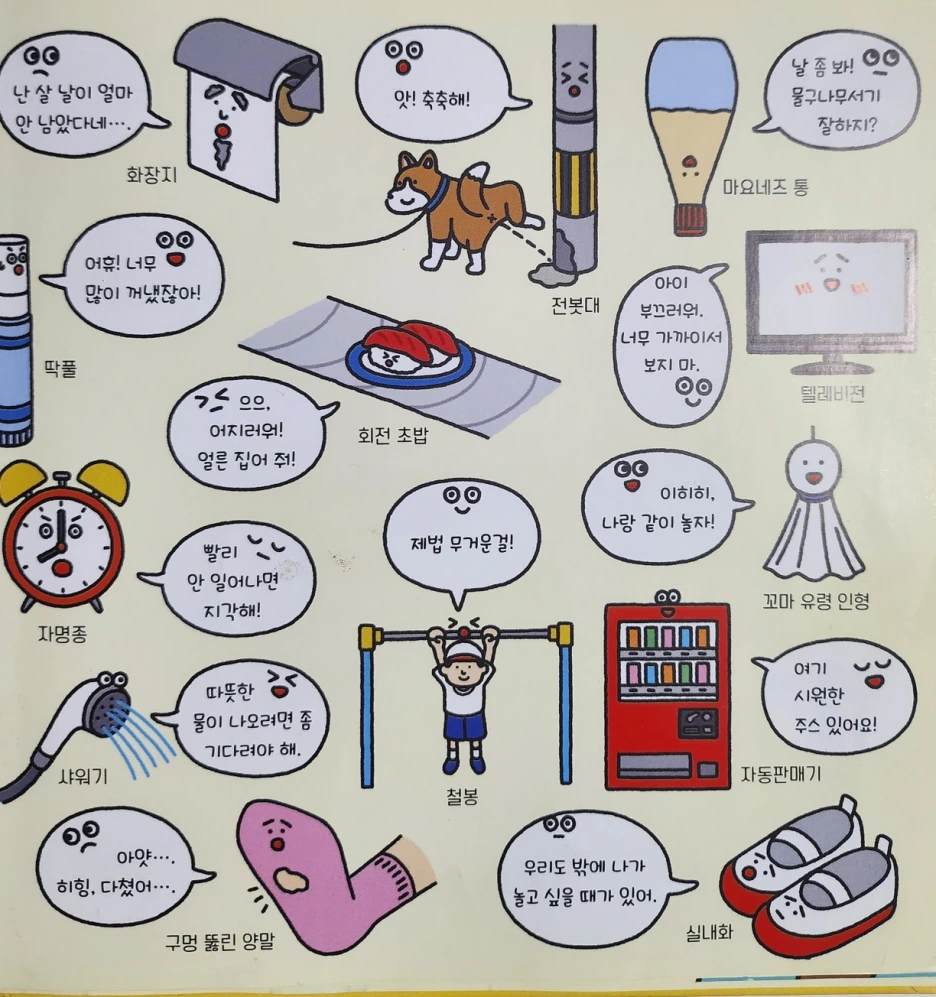 난 살 날이 얼마
안 남았다네….
화장지
앗! 축축해!
전봇대
날 좀 봐!
물구나무서기
잘하지?
마요네즈 통
어휴! 너무
많이 꺼냈잖아!
딱풀
으으,
어지러워!
얼른 집어 줘!
회전 초밥
아이
부끄러워.
너무 가까이서
보지 마.
텔레비전
빨리
안 일어나면
지각해!
자명종
제법 무거운걸!
철봉
이히히,
나랑 같이 놀자!
꼬마 유령 인형
따뜻한
물이 나오려면 좀
기다려야 해.
샤워기
여기
시원한
주스 있어요!
자동판매기
아얏….
히힝, 다쳤어….
구멍 뚫린 양말
우리도 밖에 나가
놀고 싶을 때가 있어.
실내화